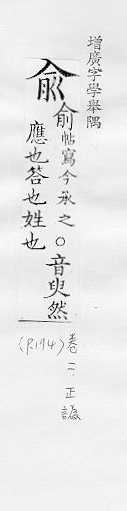 增廣字學舉隅
兪
俞帖寫今承之○音臾然
應也答也姓也
卷二.正譌
(P.194)